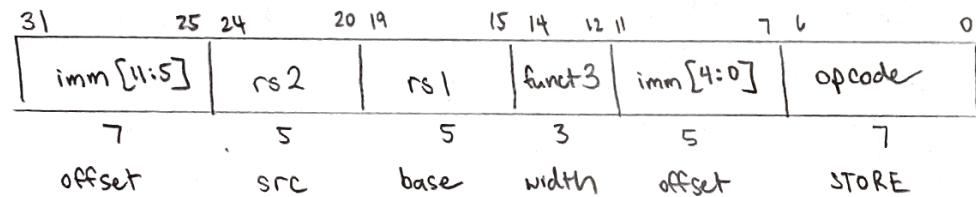 31 25 24 20 19 15 14 12 11 7 6 0
imm [11:5] rs2 rs1 funct3 imm [4:0] opcode
7 5 5 3 5 7
offset src base width offset STORE